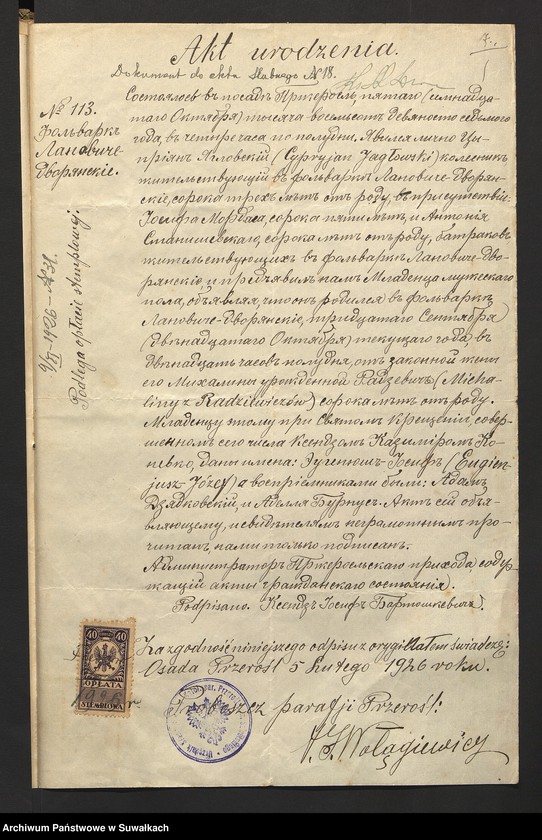 Akt urodzenia.
Dokument do aktu ślubnego № 18.
№ 113.
Фольваркъ
Лановиче-
Дворянскіе.
Состоялось въ посадѣ Пржеросль, пятаго (семнадца-
таго Октября) тысяча восемьсотъ девяносто седьмого
года, въ четыре часа по полудни. Явился лично Цы-
пріянъ Ягловскій (Cypryjan Jagłowski) колесникъ
жительствующій въ фольваркѣ Лановиче-Дворян-
скіе, сорока трехъ лѣтъ отъ роду, въ присутствіи:
Іосифа Мордаса, сорока пяти лѣтъ, и Антонія
Станишевскаго, сорока лѣтъ отъ роду, батраковъ
жительствующихъ въ фольваркѣ Лановиче-Дво-
рянскіе, и предъявилъ намъ Младенца мужескаго
пола, объявляя, что онъ родился въ фольваркѣ
Лановиче-Дворянскіе, тридцатаго Сентября
(двѣнадцатаго Октября) текущаго года, въ
двѣнадцать часовъ полудня, отъ законной жены
его Михалины урожденной Радзевичъ (Micha-
liny z Radziewiczów) сорока лѣтъ отъ роду.
Младенцу этому при Святомъ Крещеніи, совер-
шенномъ его числа Ксендзомъ Казиміромъ Ко-
певко, даны имена: Эугеніюшъ-Іосифъ (Eugien-
jusz-Józef) а воспріемниками были: Адамъ
Дзядковскій, и Аделля Бурнусъ. Актъ сей объя-
вляющему, и свидѣтелямъ неграмотнымъ про-
читанъ, нами только подписанъ.
Администраторъ Пржеросльскаго прихода, содер-
жащій акты гражданскаго состоянія.
Podpisano. Ксендзъ Іосифъ Бартошкевичъ.
9/XI-1926-№ 31.
Podlega opłacie stemplowej.
40 40
OPŁATA
STEMPLOWA
Za zgodność niniejszego odpisu z oryginałem świadczę:
Osada Przerośl 5 Lutego 1926 roku.
Proboszcz parafji Przerośl:
Wołągiewicz
Archiwum Państwowe w Suwałkach